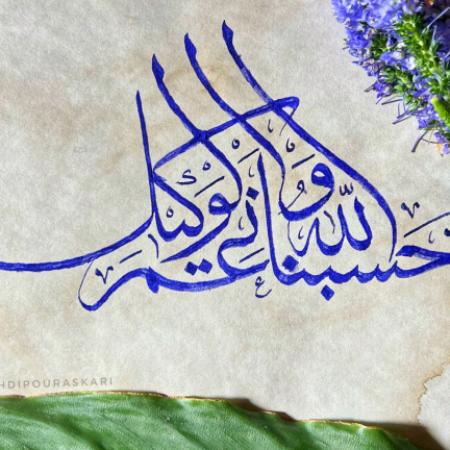 حسبنا الله و نعم الوكيل
HDIPOURASKARI